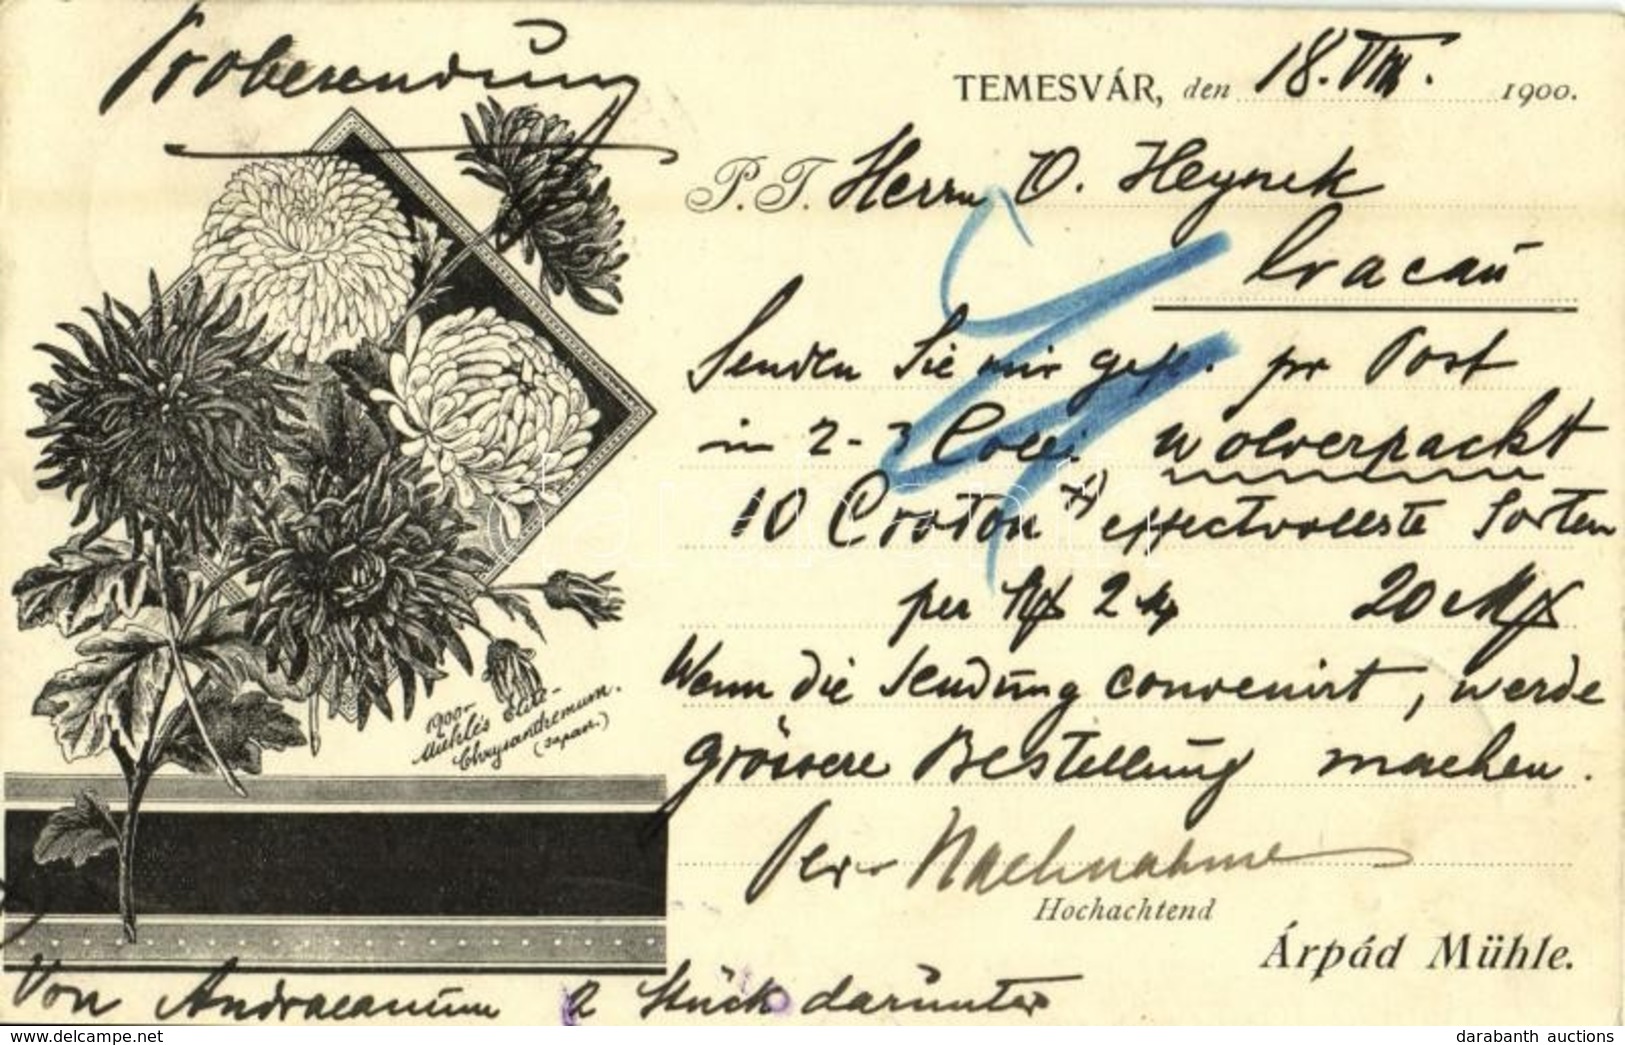 Probesendung
TEMESVÁR, den 18. VIII. 1900.
P. T. Herrn O. Heynek
Cracau
Senden Sie mir gefl. pr Post
in 2-3 Colli wolverpackt
10 Croton x) effectvollste Sorten
per 2 20 M
Wenn die Sendung convenirt, werde
grössere Bestellung machen.
Per Nachnahme
Hochachtend
Árpád Mühle.
1900-
Mühle's Elite-
Chrysanthemum.
(Japan.)
Von Andraeanum 2 Stück darunter
darabanth
Copyright darabanth auctions
darabanth auctions